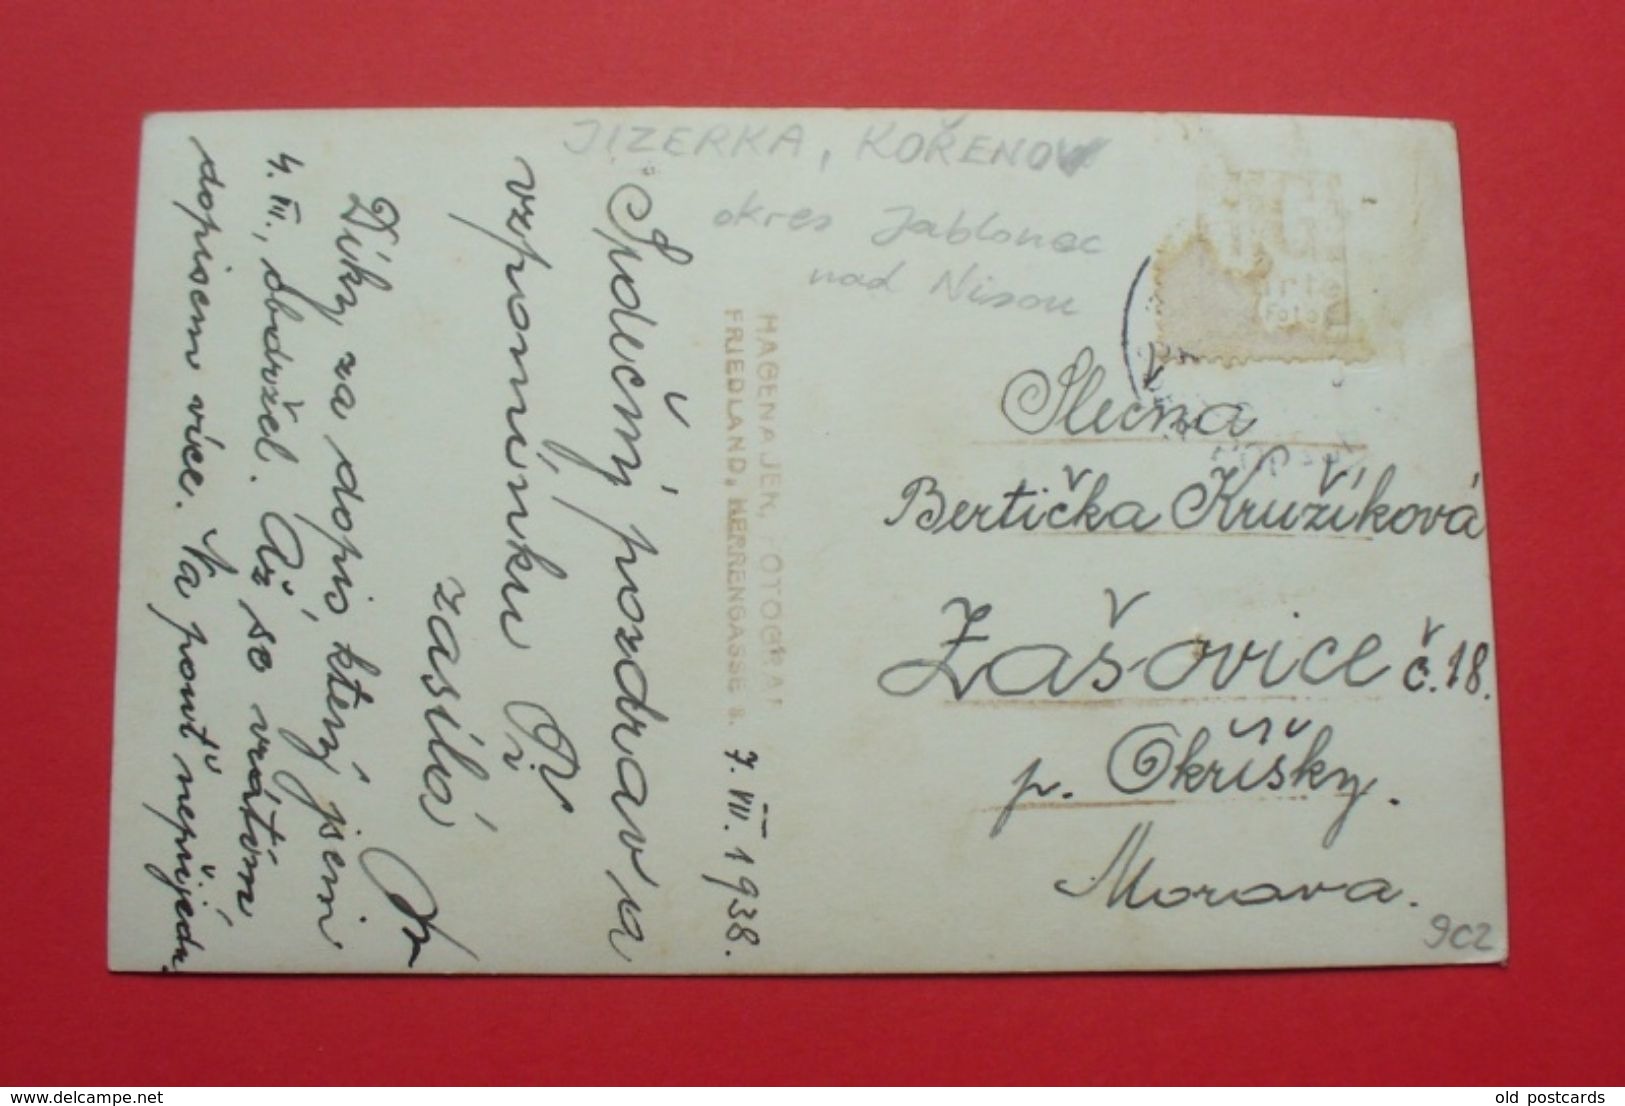 JIZERKA, KOŘENOV
okres Jablonec
nad Nisou
Srdečný pozdrav a
vzpomínku Ti
zasílá
Díky za dopis který jsem
4. VII., obdržel. Až se vrátím
dopisem více. Na pouť nepřijedu.
HAGENA JEK, FOTOGRAF
FRIEDLAND, HERRENGASSE 8.
7. VII. 1938.
Slečna
Bertička Kružíková
Zašovice č. 18.
p. Okříšky.
Morava.
9CZ
Foto
delcampe.net
old postcards